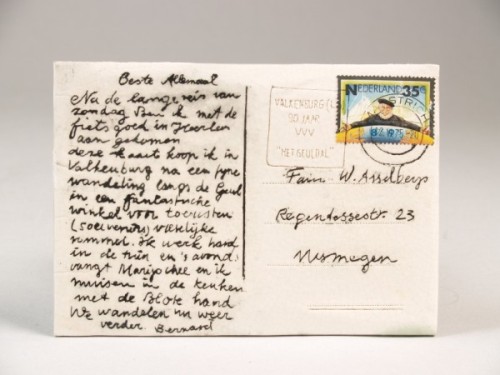 Beste Allemaal
Na de lange reis van
zondag ben ik met de
fiets goed in Heerlen
aan gekomen
deze kaart koop ik in
Valkenburg na een fijne
wandeling langs de Geul
in een fantastische
winkel voor toeristen
(soevenirs) vreselijke
rommel. Ik werk hard
in de tuin en 's avonds
vangt Marijo thee en ik
muisen in de keuken
met de blote hand
We wandelen nu weer
verder. Bernard
VALKENBURG (L)
90 JAAR
VVV
"HET GEULDAL"
NEDERLAND 35
1975
Fam. W. Asselbergs
Regentessestr. 23
Nijmegen